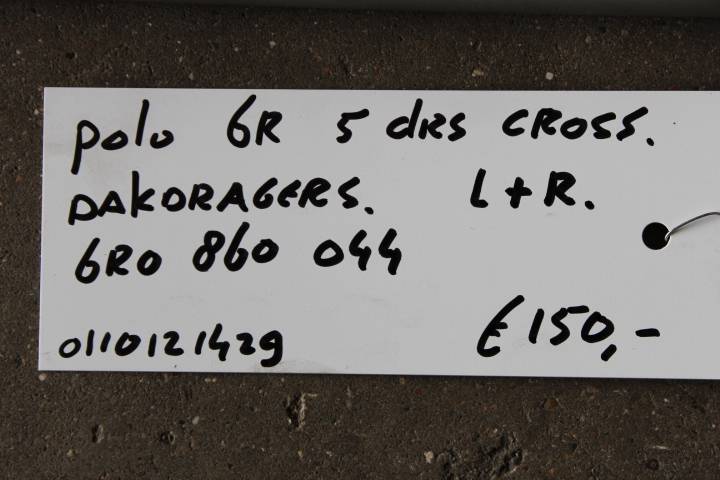 polo 6R 5 drs CROSS.
DAKDRAGERS. L+R.
6R0 860 044
0110121429 €150,-